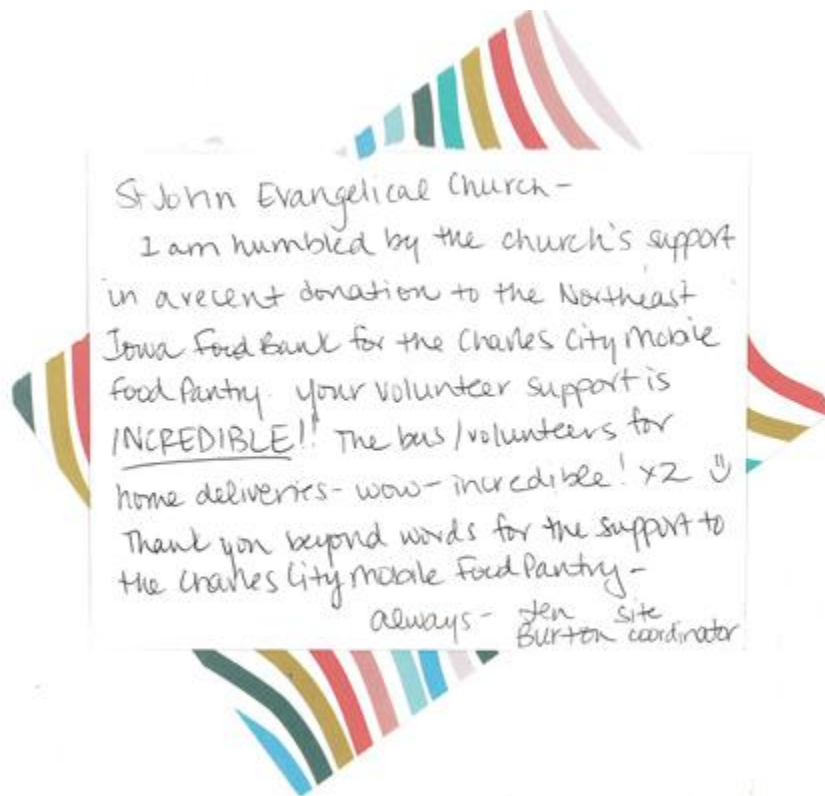 St John Evangelical Church -
I am humbled by the church's support
in a recent donation to the Northeast
Iowa Food Bank for the Charles City Mobile
Food Pantry. your volunteer support is
INCREDIBLE!! The bus/volunteers for
home deliveries - wow - incredible! x2
Thank you beyond words for the support to
the Charles City Mobile Food Pantry -
always - Jen site
Burton coordinator